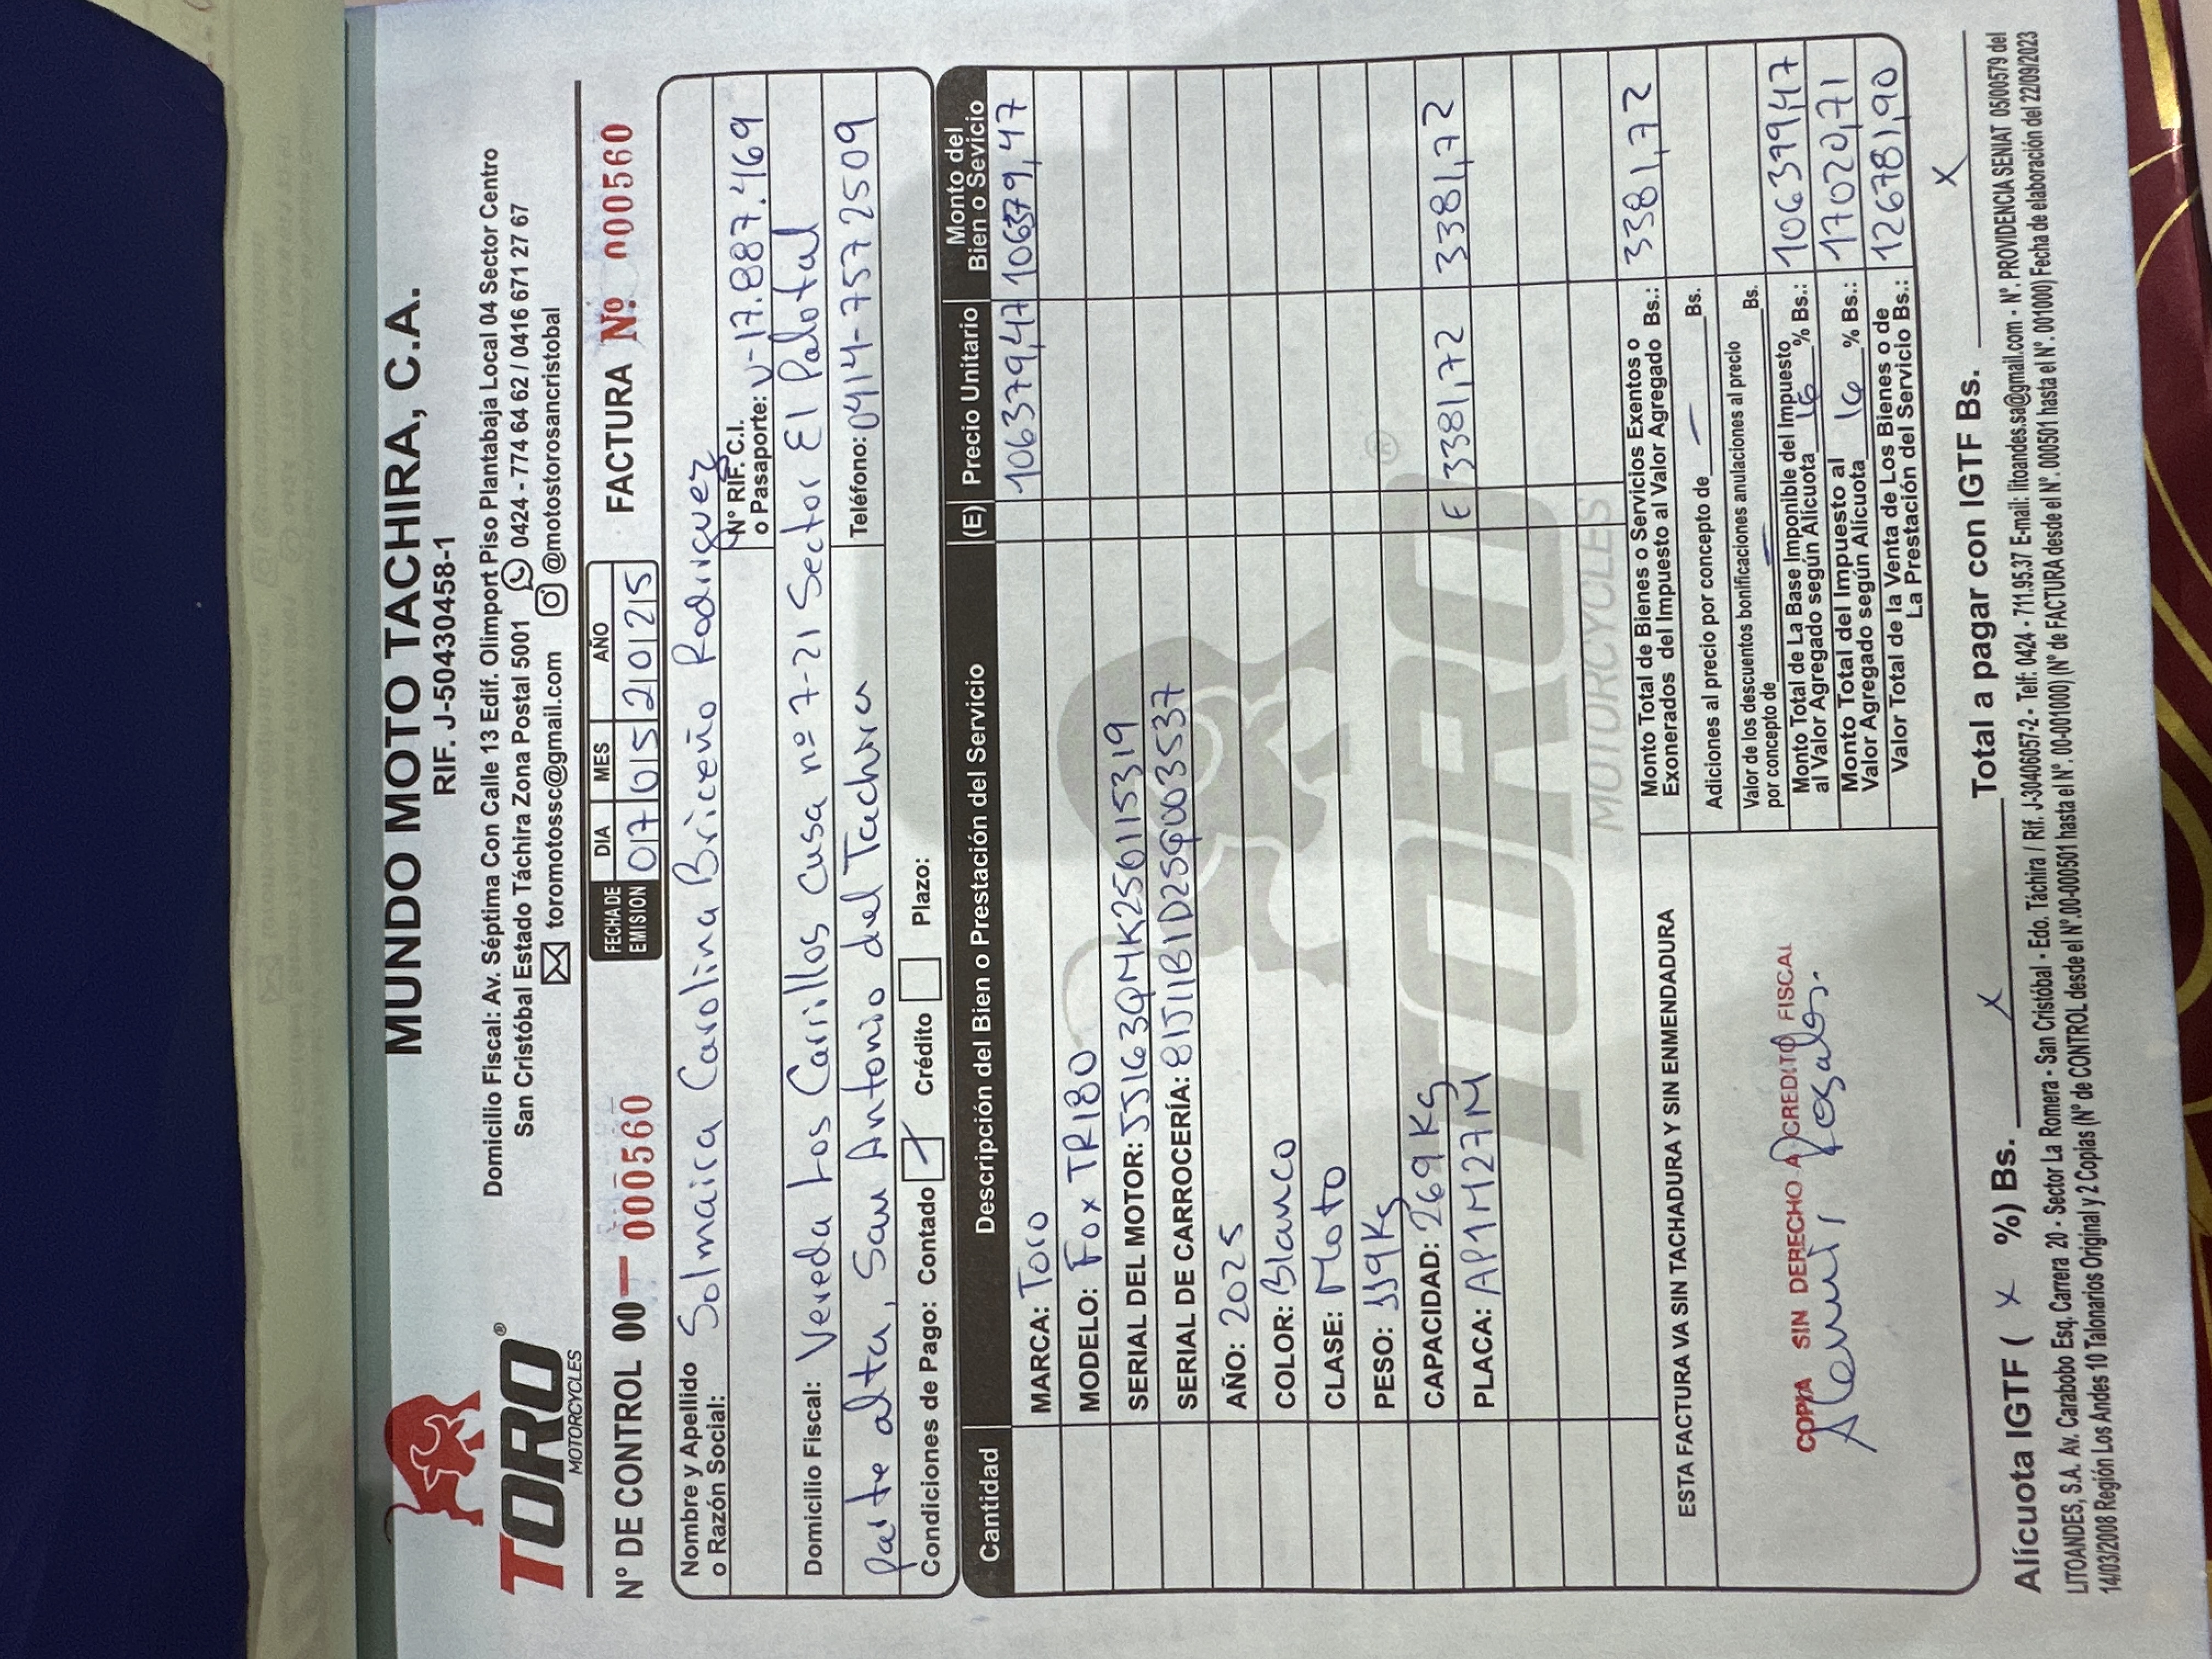 TORO®
MOTORCYCLES
MUNDO MOTO TACHIRA, C.A.
RIF. J-50430458-1
Domicilio Fiscal: Av. Séptima Con Calle 13 Edif. Olimport Piso Plantabaja Local 04 Sector Centro
San Cristóbal Estado Táchira Zona Postal 5001 0424 - 774 64 62 / 0416 671 27 67
toromotossc@gmail.com @motostorosancristobal
N° DE CONTROL 00- 000560
FECHA DE EMISION DIA MES AÑO
07 05 2025
FACTURA Nº 000560
Nombre y Apellido o Razón Social: Solmaira Carolina Briceño Rodriguez
N° RIF. C.I. o Pasaporte: V-17.887.469
Domicilio Fiscal: Vereda Los Carrillos Casa nº 7-21 Sector El Palotal
parte alta, San Antonio del Tachira Teléfono: 0414-757 2509
Condiciones de Pago: Contado Crédito Plazo:
Cantidad Descripción del Bien o Prestación del Servicio (E) Precio Unitario Monto del Bien o Sevicio
MARCA: Toro 106379,47 106379,47
MODELO: Fox TR180
SERIAL DEL MOTOR: JJ163QMK25G115319
SERIAL DE CARROCERÍA: 81J11B1D2SQ003537
AÑO: 2025
COLOR: Blanco
CLASE: Moto
PESO: 119Kg
CAPACIDAD: 269Kg E 3381,72 3381,72
PLACA: AP1M27M
TORO®
MOTORCYCLES
ESTA FACTURA VA SIN TACHADURA Y SIN ENMENDADURA
Monto Total de Bienes o Servicios Exentos o Exonerados del Impuesto al Valor Agregado Bs.: 3381,72
Adiciones al precio por concepto de — Bs.
Valor de los descuentos bonificaciones anulaciones al precio por concepto de — Bs.
Monto Total de La Base Imponible del Impuesto al Valor Agregado según Alicuota 16 % Bs.: 106399,47
Monto Total del Impuesto al Valor Agregado según Alícuota 16 % Bs.: 17020,71
Valor Total de la Venta de Los Bienes o de La Prestación del Servicio Bs.: 126781,90
COPIA SIN DERECHO A CREDITO FISCAL
Rosales.
Alícuota IGTF ( X %) Bs. X Total a pagar con IGTF Bs. X
LITOANDES, S.A. Av. Carabobo Esq. Carrera 20 - Sector La Romera - San Cristóbal - Edo. Táchira / Rif. J-30406057-2 - Telf: 0424 - 711.95.37 E-mail: litoandes.sa@gmail.com - Nº. PROVIDENCIA SENIAT 05/00579 del
14/03/2008 Región Los Andes 10 Talonarios Original y 2 Copias (Nº de CONTROL desde el Nº.00-000501 hasta el Nº. 00-001000) (Nº de FACTURA desde el Nº. 000501 hasta el Nº. 001000) Fecha de elaboración del 22/09/2023